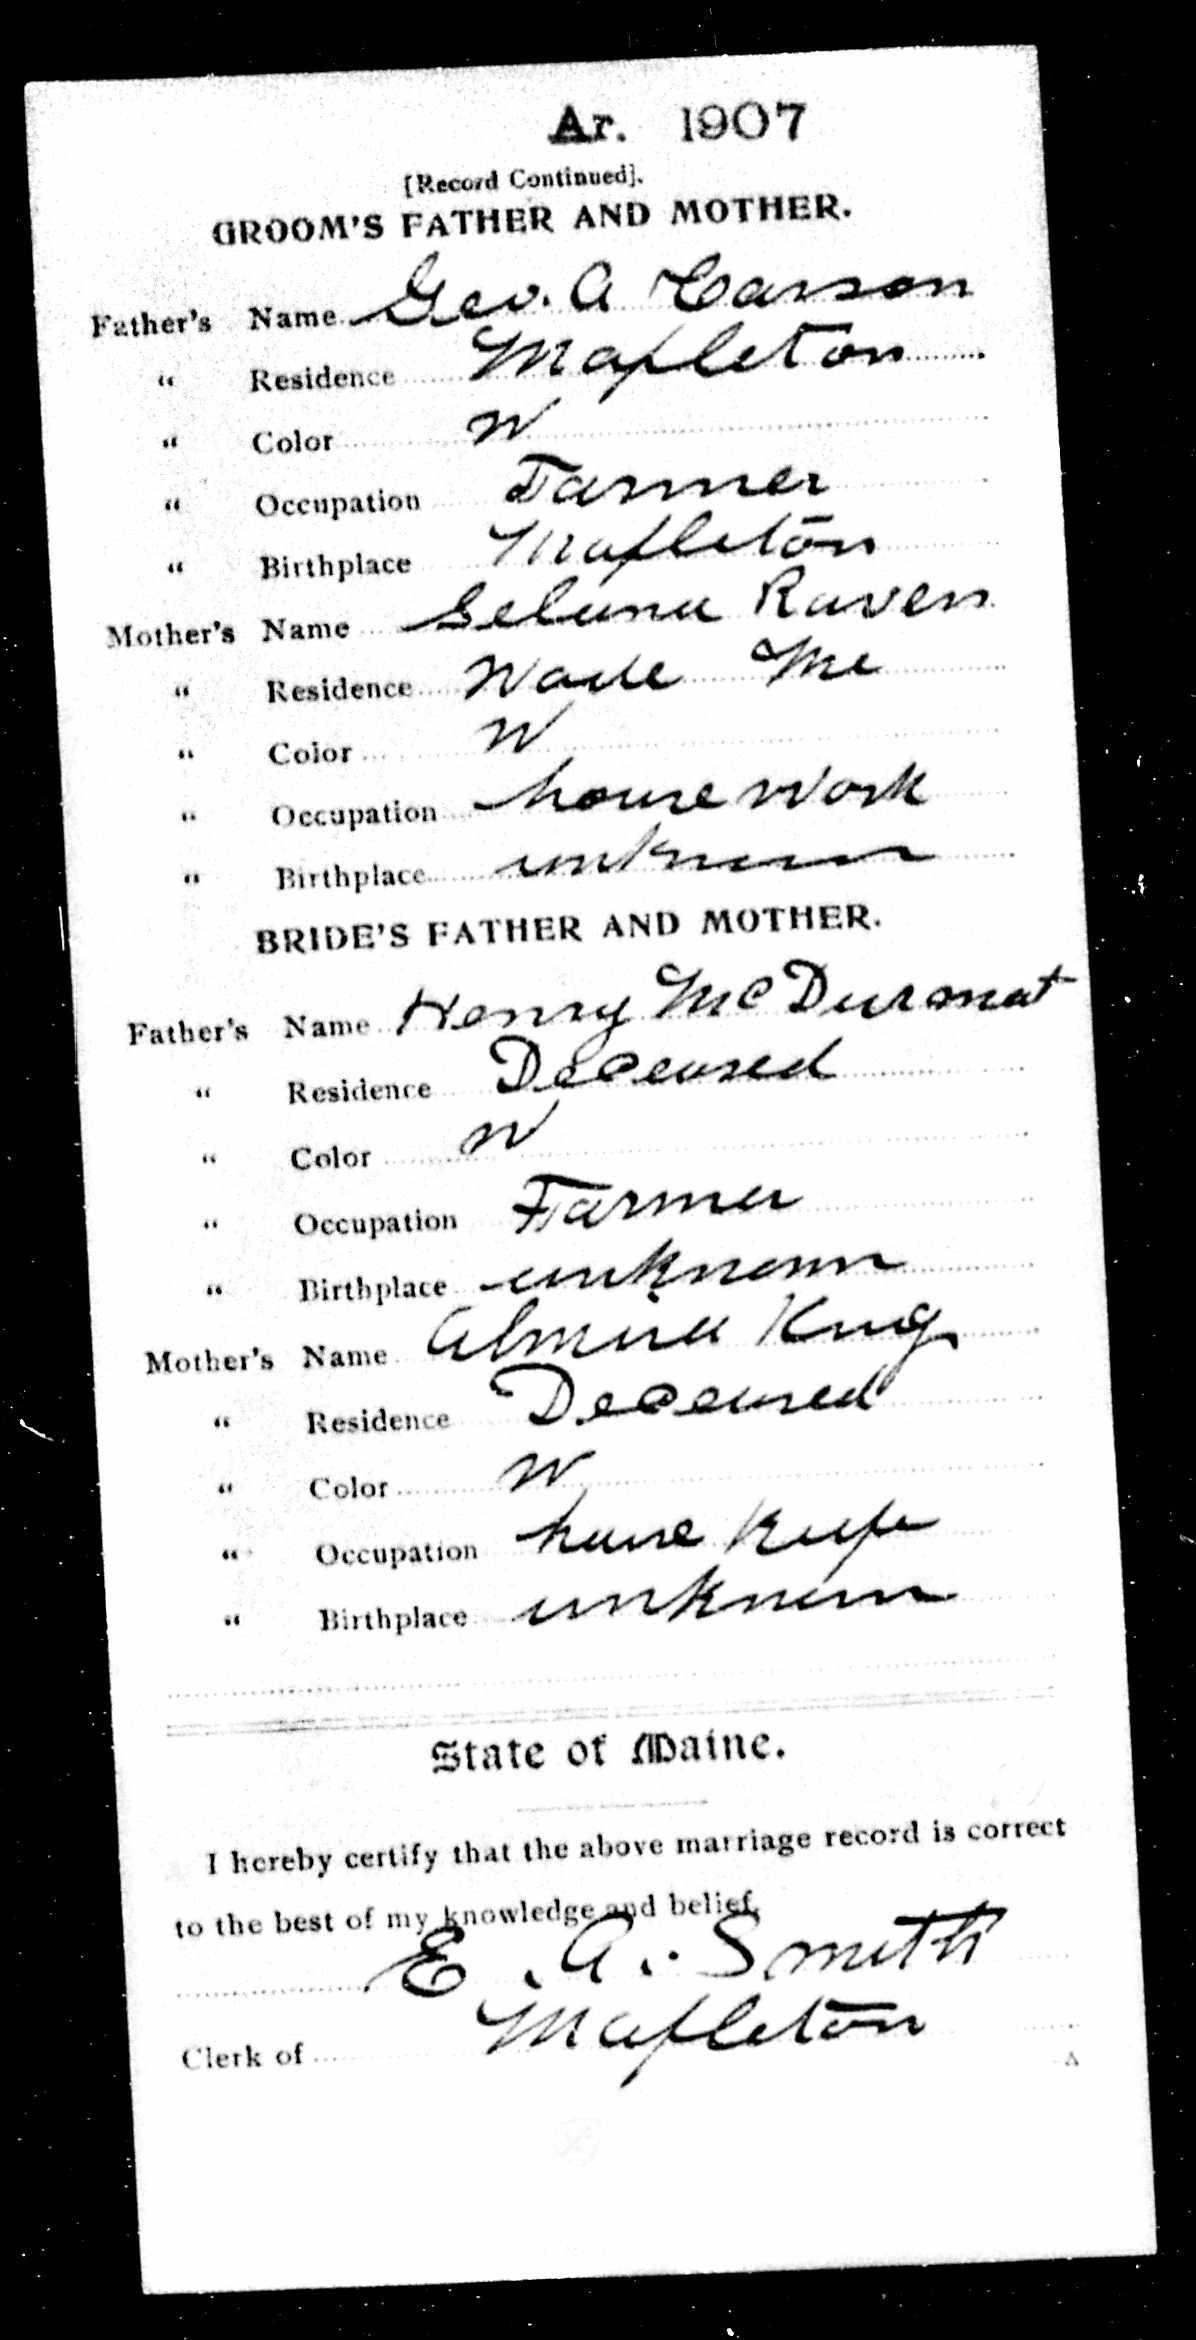 Ar. 1907
[Record Continued].
GROOM'S FATHER AND MOTHER.
Father's Name Geo. A Carson
" Residence Mapleton
" Color W
" Occupation Farmer
" Birthplace Mapleton
Mother's Name Raven
" Residence Wade Me
" Color W
" Occupation house Work
" Birthplace unknown
BRIDE'S FATHER AND MOTHER.
Father's Name Henry McDurmat
" Residence Deceased
" Color W
" Occupation Farmer
" Birthplace unknown
Mother's Name Almira King
" Residence Deceased
" Color W
" Occupation house
" Birthplace unknown
State of Maine.
I hereby certify that the above marriage record is correct
to the best of my knowledge and belief.
E. A. Smith
Clerk of Mapleton
A